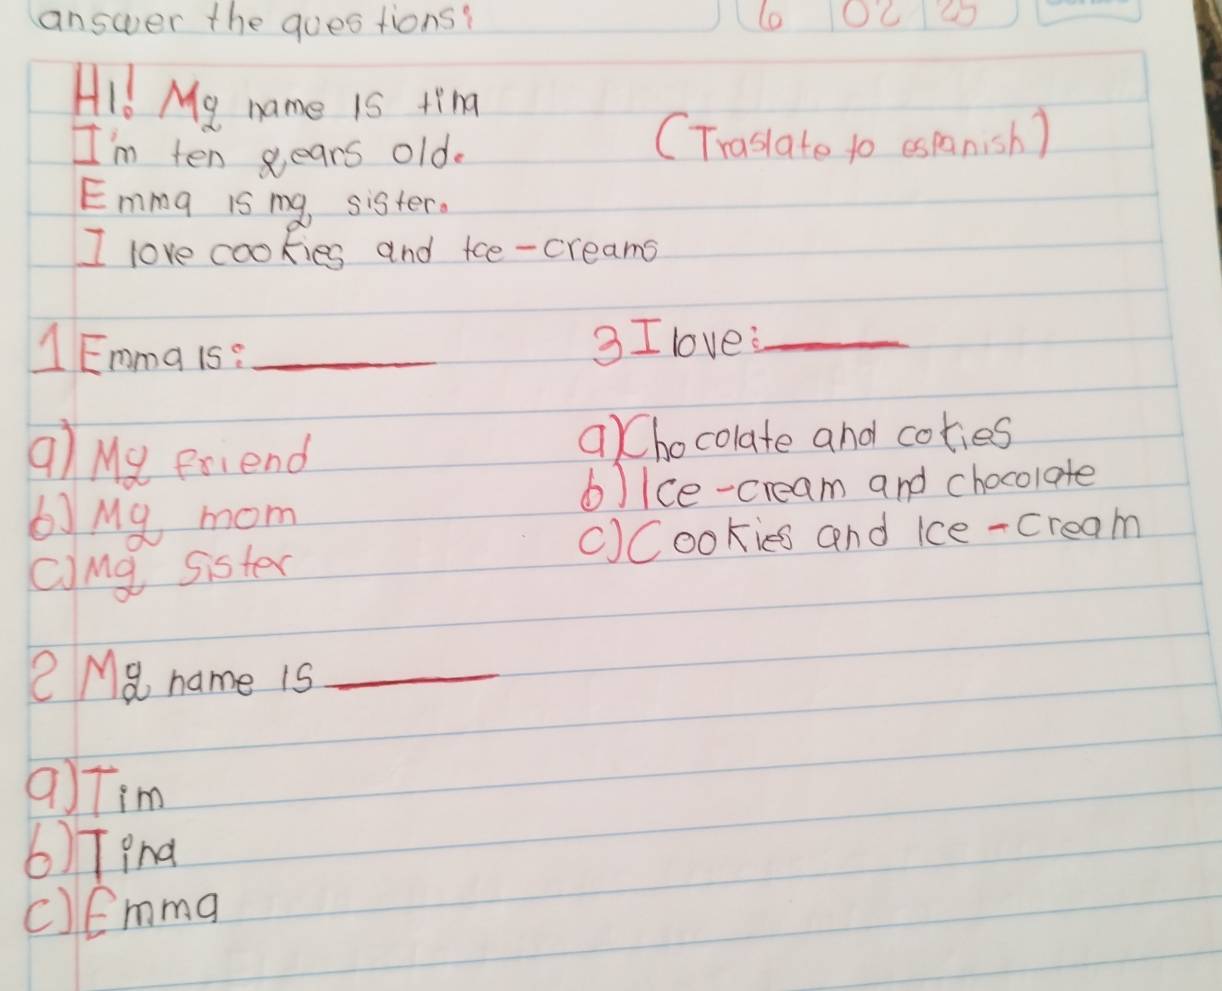 answer the questions:
6 02 25
Hi! My name is tina
I'm ten years old.
(Traslate to espanish)
Emma is my sister.
I love cookies and Ice-creams
1 Emma is:
3 I love:
a) My friend
b) My mom
c) My sister
a) Chocolate and cokies
b) Ice-cream and chocolate
c) Cookies and Ice-cream
2 My name is
a) Tim
b) Tina
c) Emma